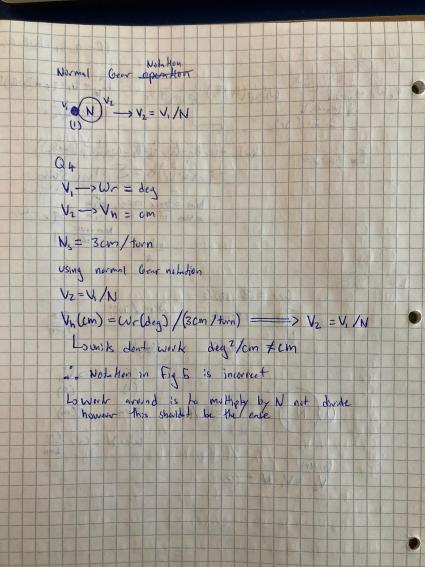 Notation
Normal Gear operation
V₁ N V₂ → V₂ = V₁/N
(1)
Q4
V₁ → Wr = deg
V₂ → Vh = cm
Ns = 3cm/turn
using normal Gear notation
V₂ = V₁/N
Vh(cm) = Wr(deg)/(3cm/turn) ⟹ V₂ = V₁/N
↳ units dont work deg²/cm ≠ cm
∴ Notation in Fig 5 is incorrect
↳ work around is to multiply by N not divide
however this shouldnt be the case